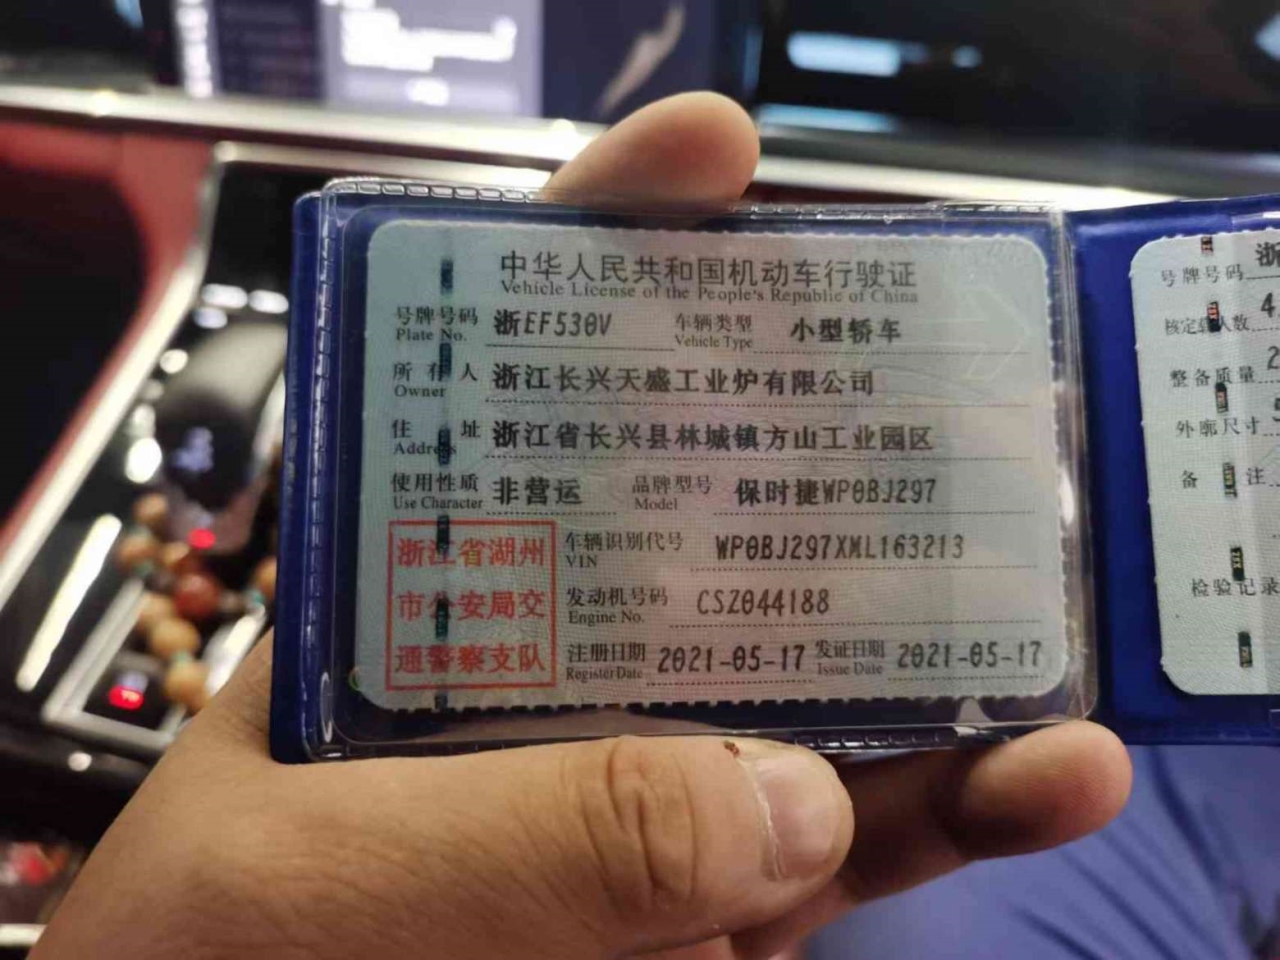 中华人民共和国机动车行驶证
Vehicle License of the People's Republic of China
号牌号码 浙EF530V 车辆类型 小型轿车
Plate No. Vehicle Type
所有人 浙江长兴天盛工业炉有限公司
Owner
住址 浙江省长兴县林城镇方山工业园区
Address
使用性质 非营运 品牌型号 保时捷WP0BJ297
Use Character Model
浙江省湖州
市公安局交
通警察支队
车辆识别代号 WP0BJ297XML163213
VIN
发动机号码 CSZ044188
Engine No.
注册日期 2021-05-17 发证日期 2021-05-17
Register Date Issue Date
号牌号码 浙
核定载人数 4
整备质量 2
外廓尺寸
备注
检验记录